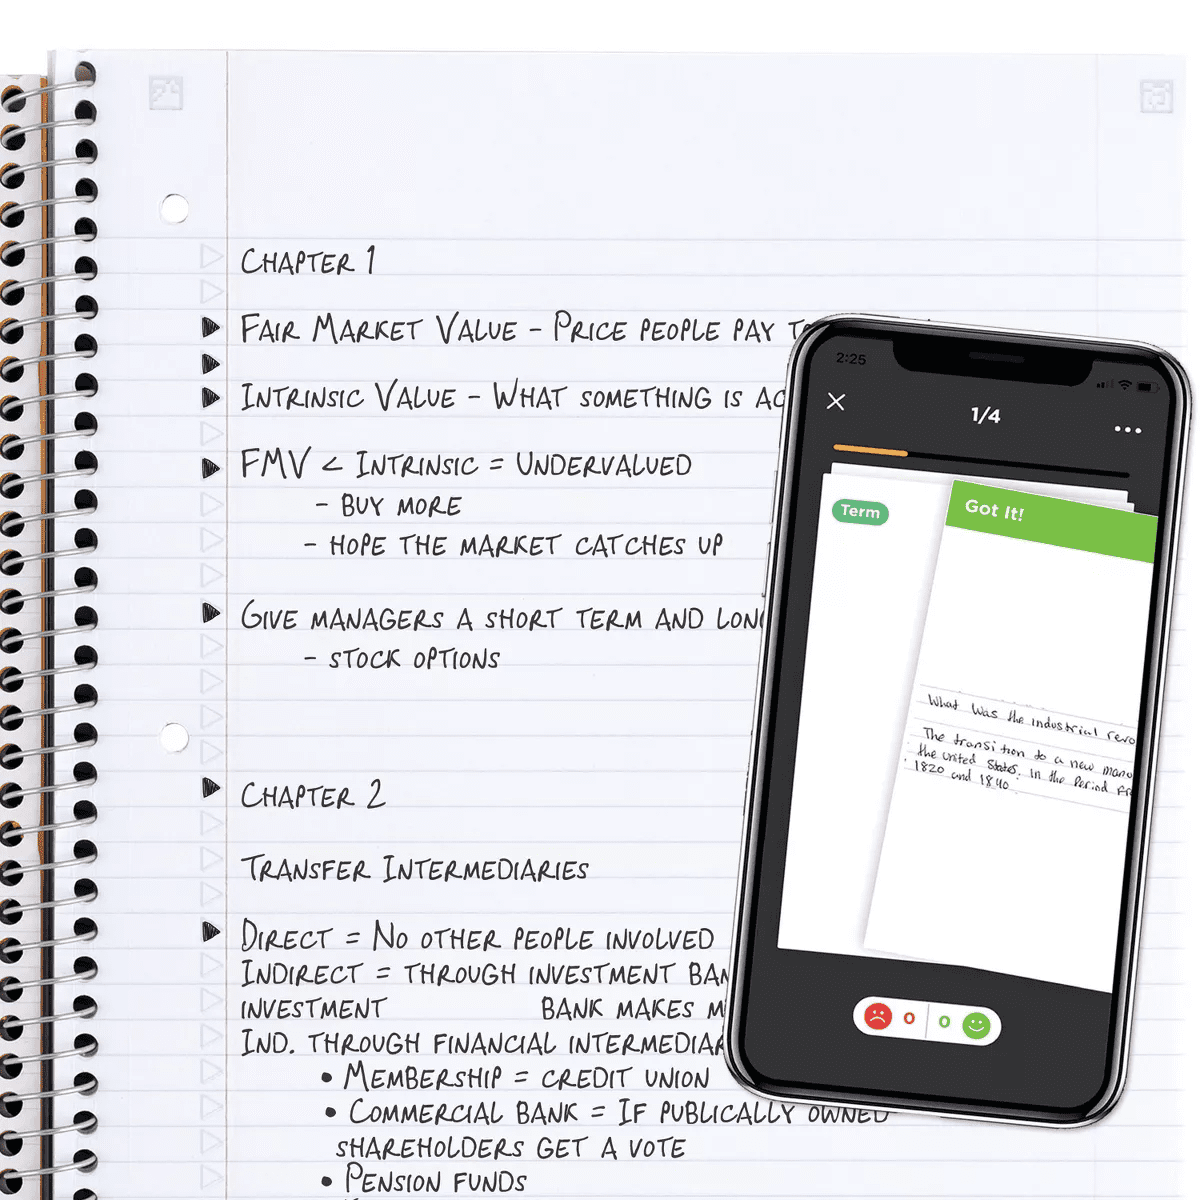 Chapter 1
Fair Market Value - Price people pay
Intrinsic Value - What something is
FMV < Intrinsic = Undervalued
- buy more
- hope the market catches up
Give managers a short term and
- stock options
Chapter 2
Transfer Intermediaries
Direct = No other people involved
Indirect = through investment
investment bank makes
Ind. through financial
• Membership = credit union
• Commercial bank = If publically owned
shareholders get a vote
• Pension funds
2:25
1/4
Term
Got It!
What was the industrial
The transition to a new
the united States. in the Period
1820 and 1840
0 0